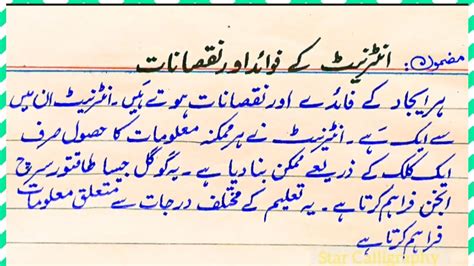 مضمون: انٹرنیٹ کے فوائد اور نقصانات
ہر ایجاد کے فائدے اور نقصانات ہوتے ہیں۔ انٹرنیٹ ان میں
سے ایک ہے۔ انٹرنیٹ نے ہر ممکنہ معلومات کا حصول صرف
ایک کلک کے ذریعے ممکن بنا دیا ہے۔ یہ گوگل جیسا طاقتور سرچ
انجن فراہم کرتا ہے۔ یہ تعلیم کے مختلف درجات سے متعلق معلومات
فراہم کرتا ہے
Star Calligraphy